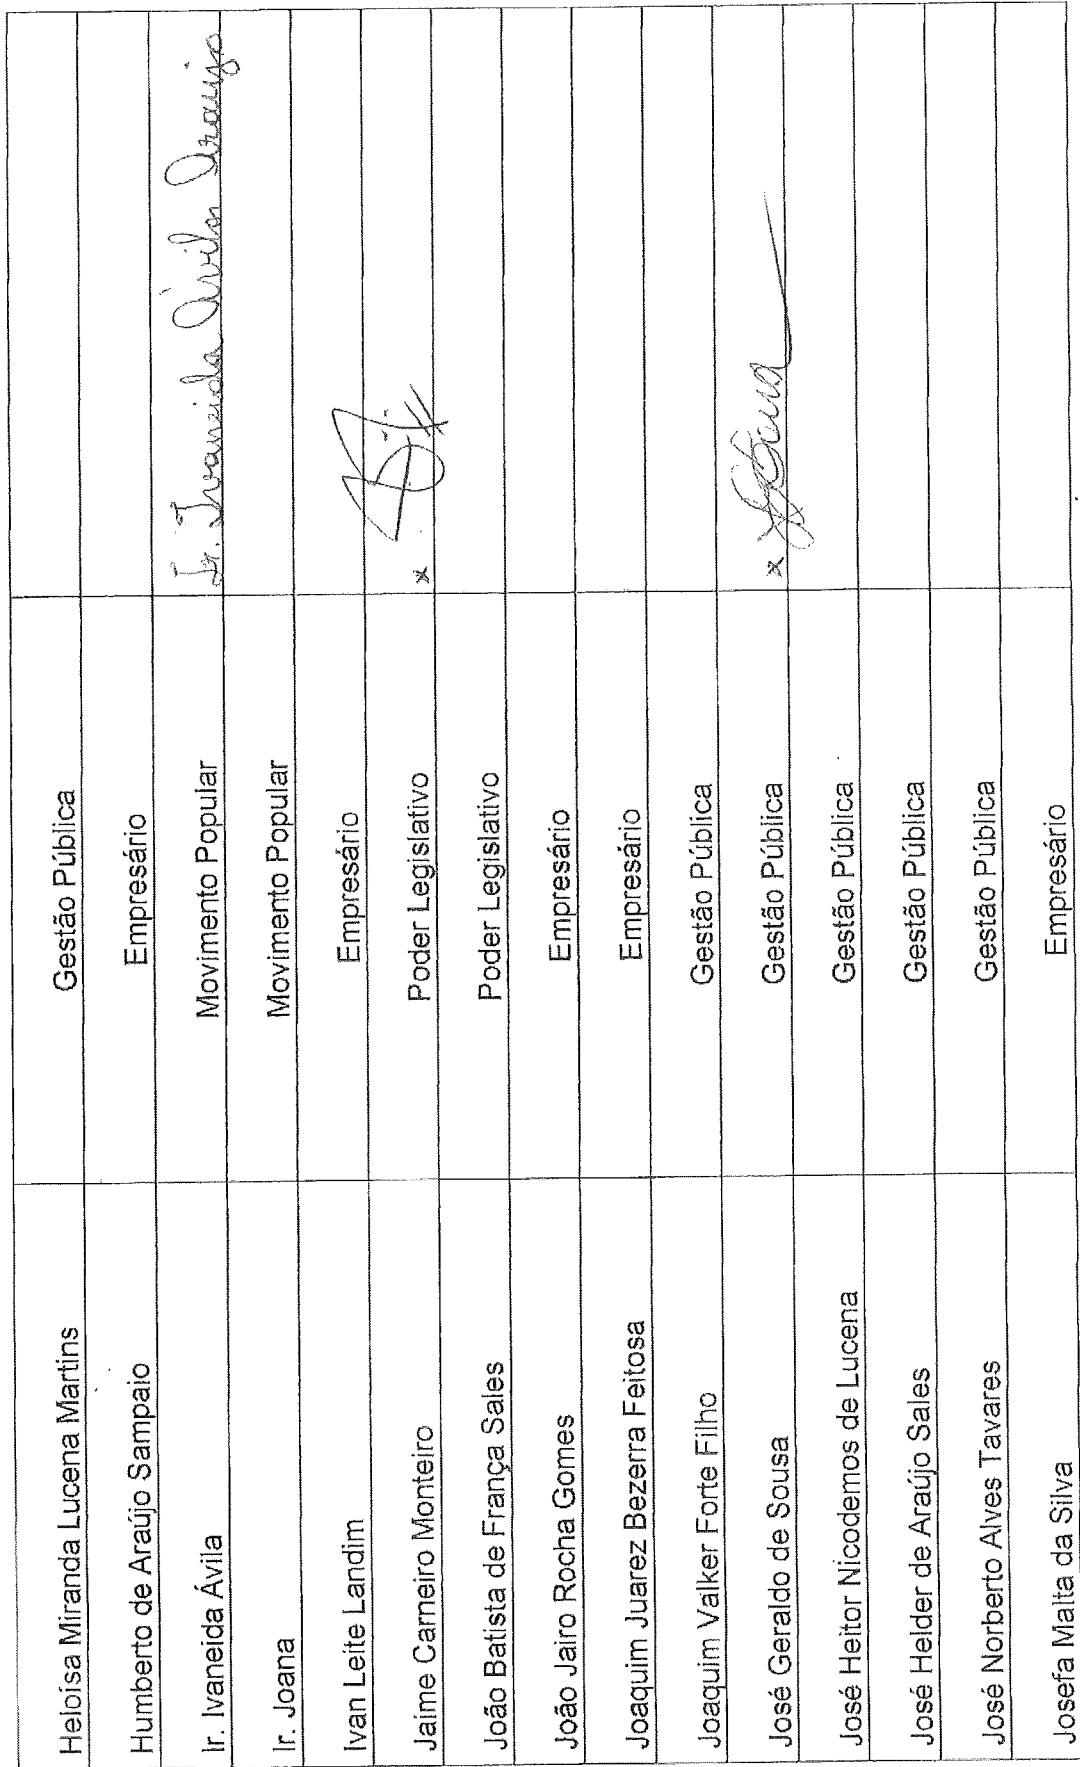 Heloísa Miranda Lucena Martins Gestão Pública
Humberto de Araújo Sampaio Empresário
Ir. Ivaneida Ávila Movimento Popular Ir. Ivaneida Ávila Araújo
Ir. Joana Movimento Popular
Ivan Leite Landim Empresário
Jaime Carneiro Monteiro Poder Legislativo x
João Batista de França Sales Poder Legislativo
João Jairo Rocha Gomes Empresário
Joaquim Juarez Bezerra Feitosa Empresário
Joaquim Valker Forte Filho Gestão Pública
José Geraldo de Sousa Gestão Pública x
José Heitor Nicodemos de Lucena Gestão Pública
José Helder de Araújo Sales Gestão Pública
José Norberto Alves Tavares Gestão Pública
Josefa Malta da Silva Empresário